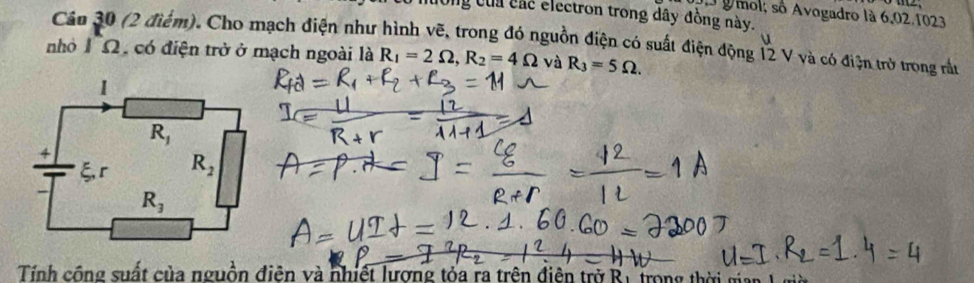 của các electron trong dây đồng này.
g/mol; số Avogadro là 6,02.1023
Câu 30 (2 điểm). Cho mạch điện như hình vẽ, trong đó nguồn điện có suất điện động 12 V và có điện trở trong rất
nhỏ 1 Ω, có điện trở ở mạch ngoài là R₁ = 2 Ω, R₂ = 4 Ω và R₃ = 5 Ω.
Rtđ = R₁ + R₂ + R₃ = 11 Ω
I = U/(R+r) = 12/(11+1) = 1
A = P.t = I = ξ/(R+r) = 12/12 = 1 A
A = UIt = 12.1.60.60 =
P = I²R₂ = 1².4 = 4W
U = I.R₂ = 1.4 = 4
I
R₁
+
ξ, r
R₂
−
R₃
Tính công suất của nguồn điện và nhiệt lượng tỏa ra trên điện trở R₁ trong thời gian 1 giờ